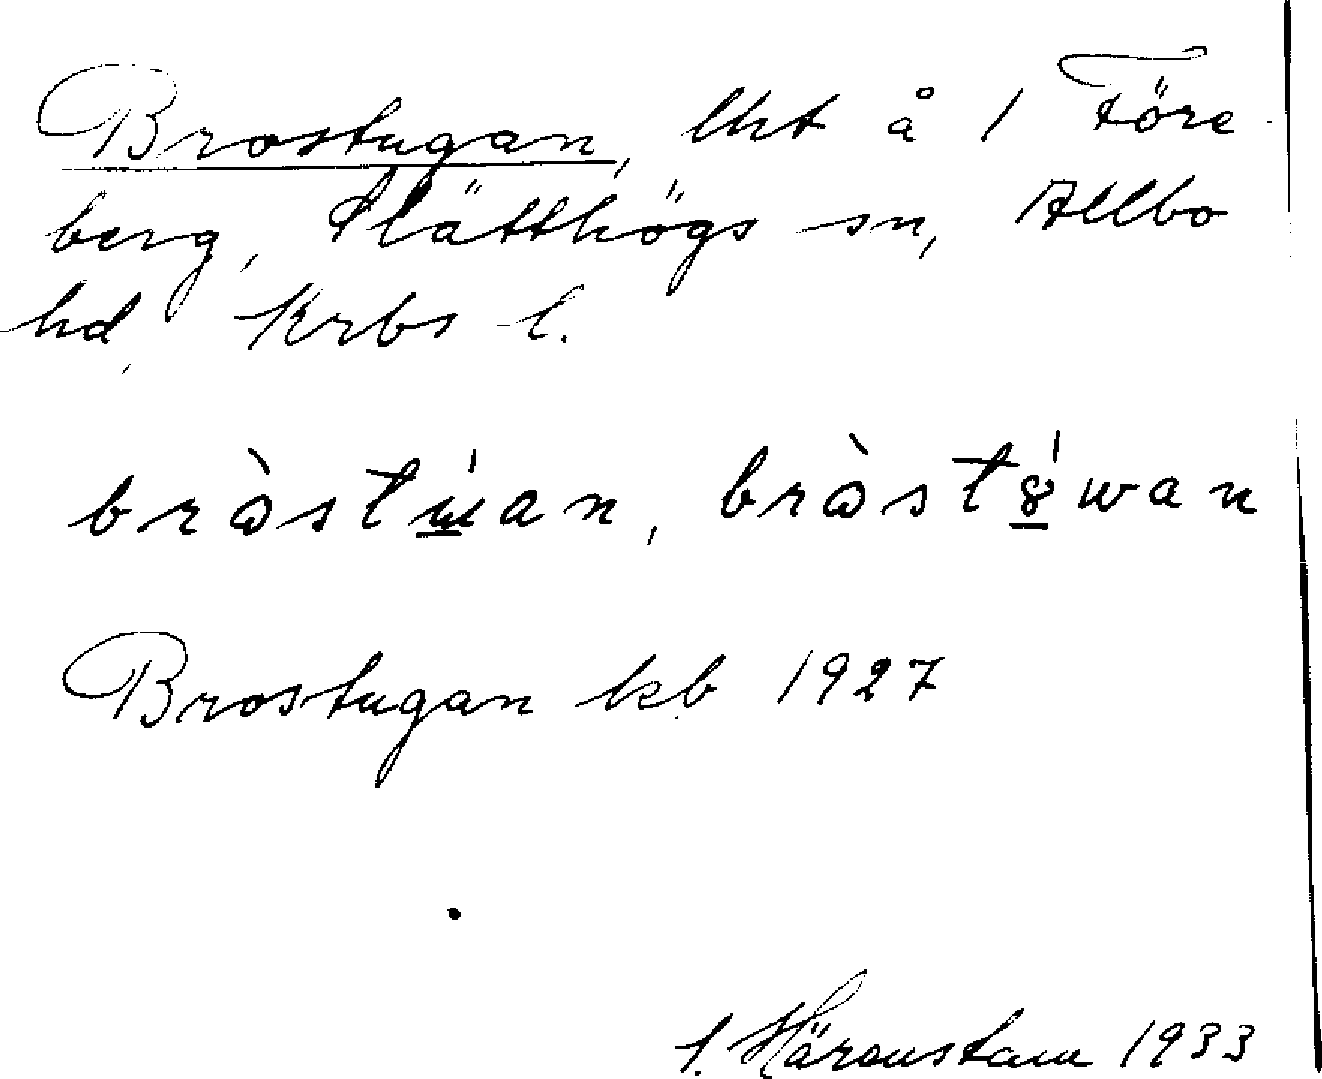 Brostugan, lht å 1 Före-
berg, Slätthögs sn, Allbo
hd, Krbs l.
bròstú̲an, bròst8̲́wan
Brostugan kb 1927
S. Härenstam 1933